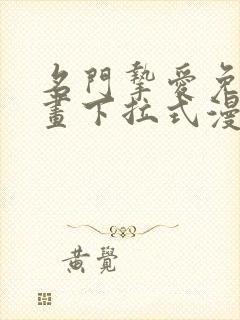 名門摯愛免
畫下拉式漫
黃覺